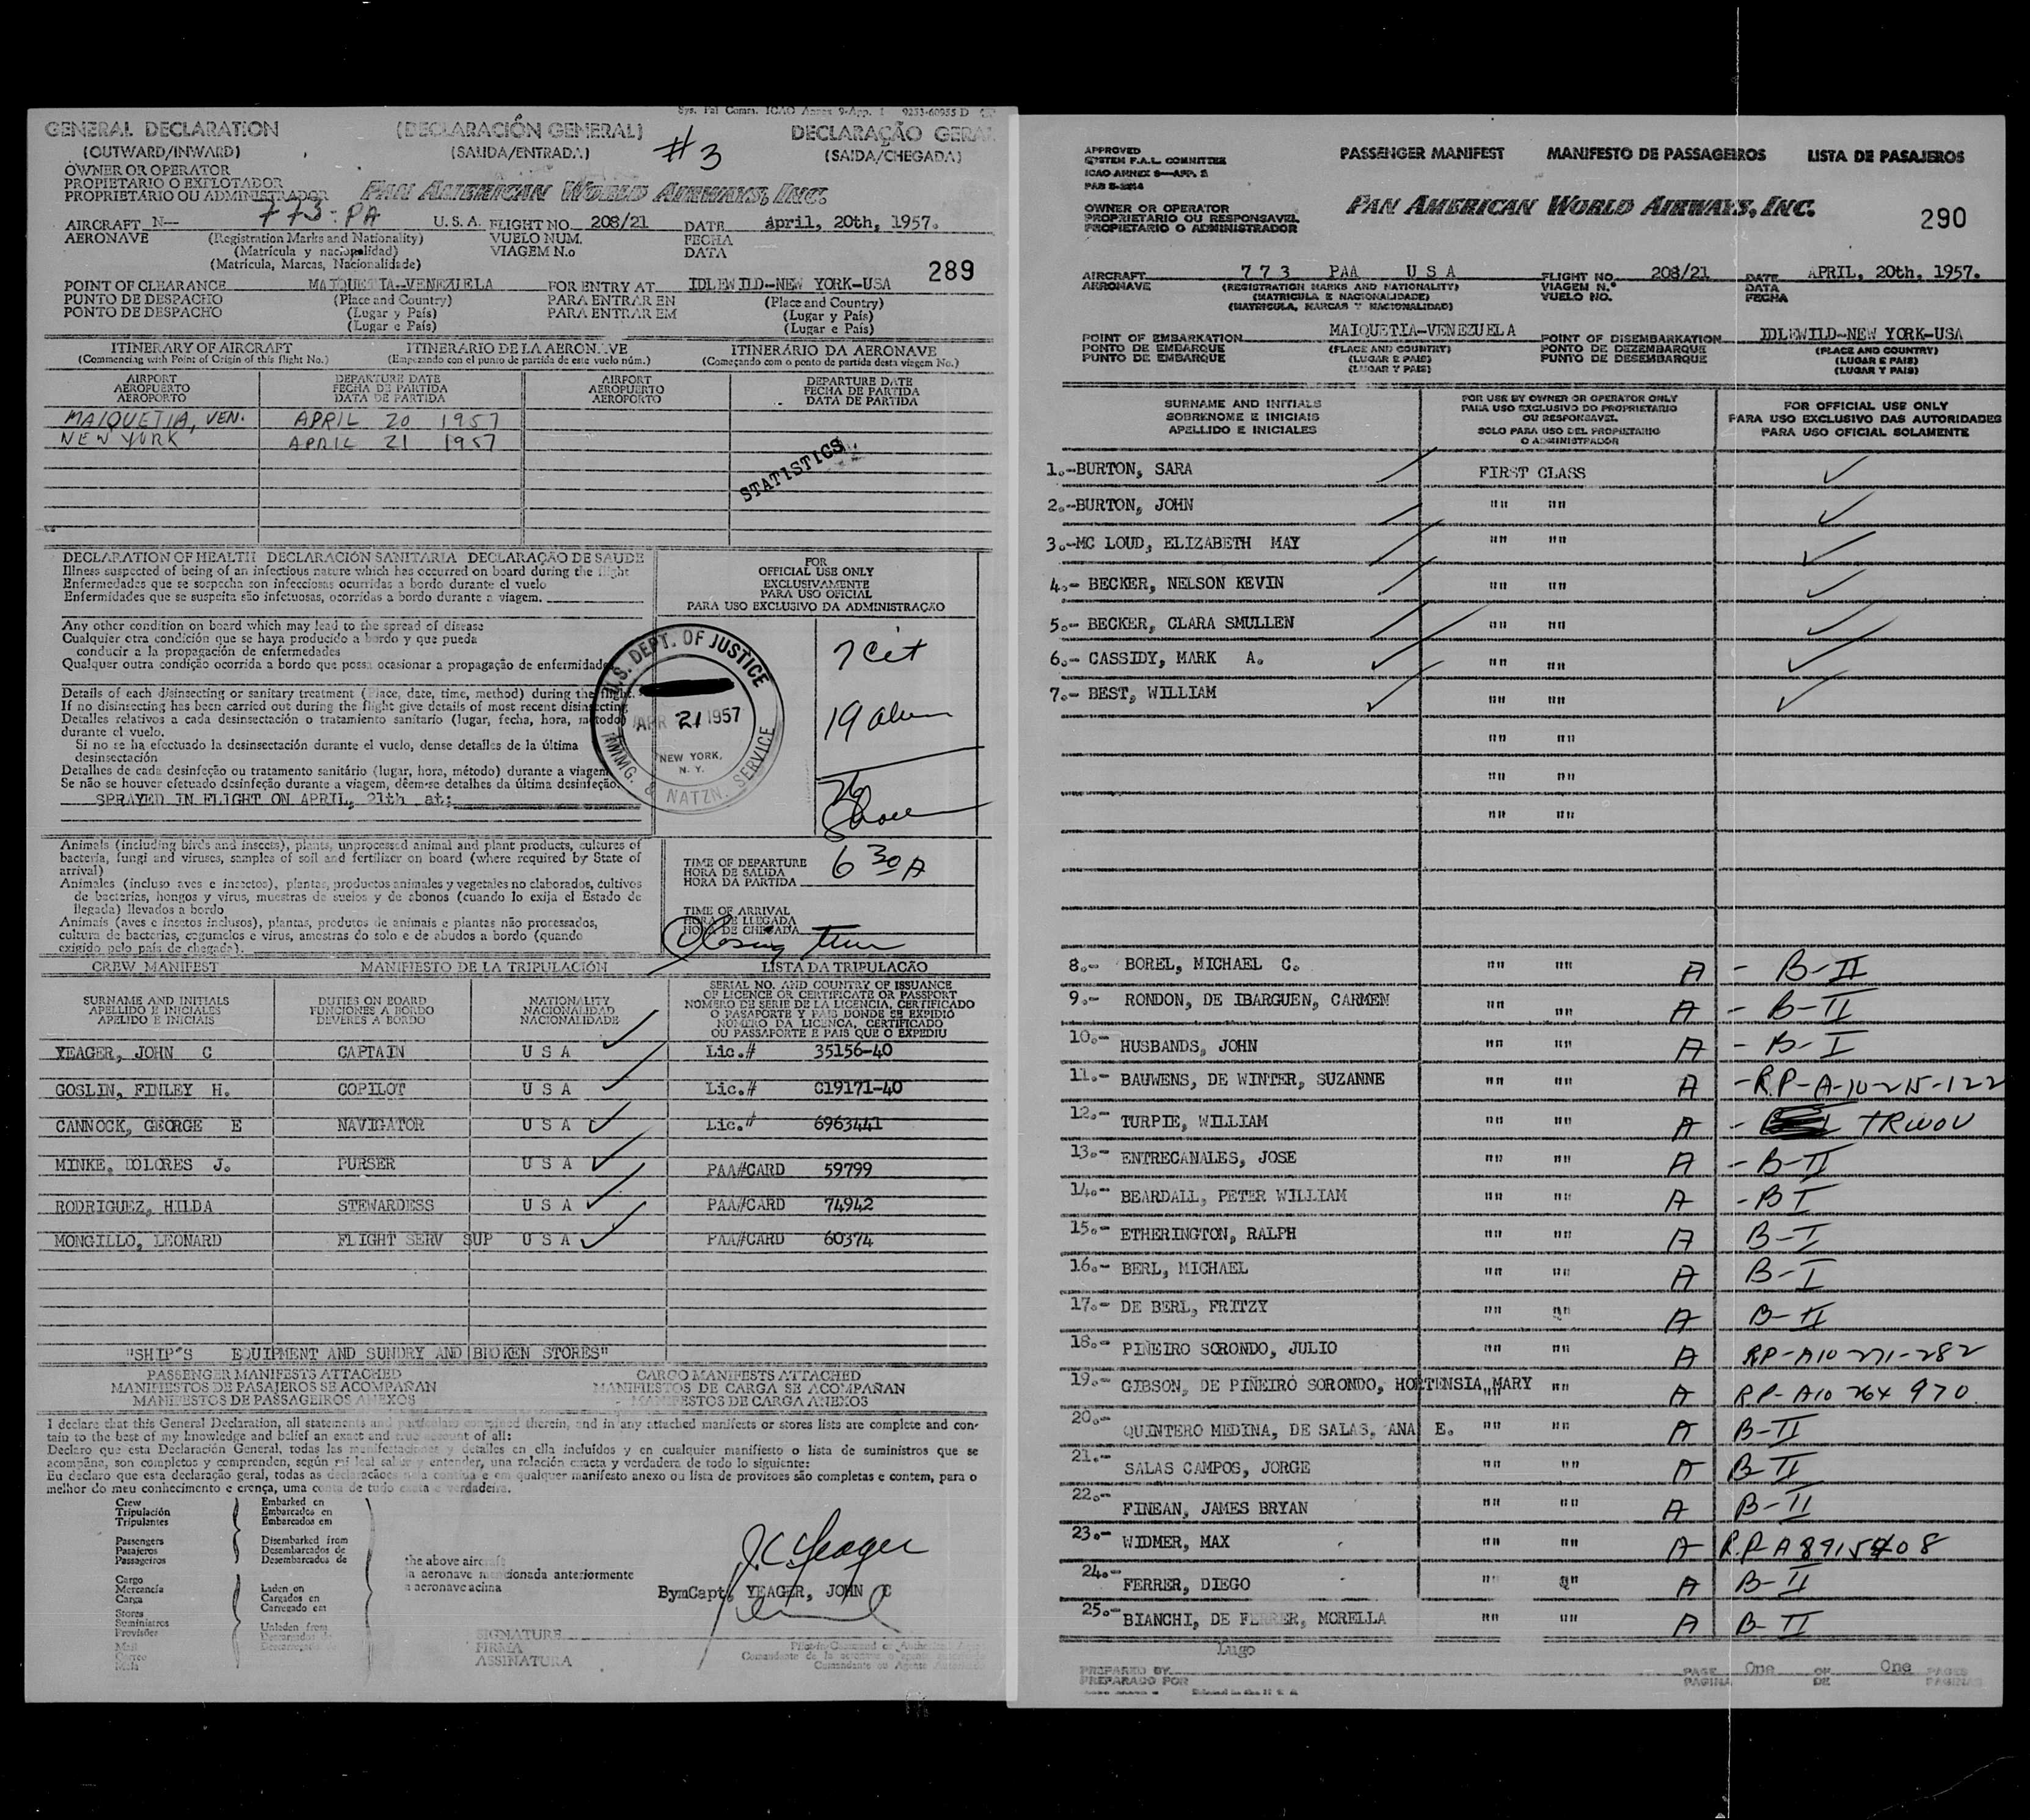 Sys. Fal Comm. ICAO Annex 9-App. 1 9253-60955 D
GENERAL DECLARATION (DECLARACIÓN GENERAL) DECLARAÇÃO GERAL
(OUTWARD/INWARD) (SALIDA/ENTRADA) #3 (SAIDA/CHEGADA)
OWNER OR OPERATOR
PROPIETARIO O EXPLOTADOR
PROPRIETÁRIO OU ADMINISTRADOR PAN AMERICAN WORLD AIRWAYS, INC.
AIRCRAFT N-- 773-PA U.S.A. FLIGHT NO. 208/21 DATE april, 20th, 1957.
AERONAVE (Registration Marks and Nationality) VUELO NUM. FECHA
(Matrícula y nacionalidad) VIAGEM N.o DATA
(Matrícula, Marcas, Nacionalidade)
289
POINT OF CLEARANCE MAIQUETIA-VENEZUELA FOR ENTRY AT IDLEWILD-NEW YORK-USA
PUNTO DE DESPACHO (Place and Country) PARA ENTRAR EN (Place and Country)
PONTO DE DESPACHO (Lugar y País) PARA ENTRAR EM (Lugar y País)
(Lugar e País) (Lugar e País)
ITINERARY OF AIRCRAFT ITINERARIO DE LA AERONAVE ITINERÁRIO DA AERONAVE
(Commencing with Point of Origin of this flight No.) (Empezando con el punto de partida de este vuelo núm.) (Começando com o ponto de partida desta viagem No.)
AIRPORT DEPARTURE DATE AIRPORT DEPARTURE DATE
AEROPUERTO FECHA DE PARTIDA AEROPUERTO FECHA DE PARTIDA
AEROPORTO DATA DE PARTIDA AEROPORTO DATA DE PARTIDA
MAIQUETIA, VEN. APRIL 20 1957
NEW YORK APRIL 21 1957
STATISTICS
DECLARATION OF HEALTH DECLARACIÓN SANITARIA DECLARAÇÃO DE SAUDE
Illness suspected of being of an infectious nature which has occurred on board during the flight
Enfermedades que se sospecha son infecciosas ocurridas a bordo durante el vuelo
Enfermidades que se suspeita são infetuosas, ocorridas a bordo durante a viagem.
Any other condition on board which may lead to the spread of disease
Cualquier otra condición que se haya producido a bordo y que pueda
conducir a la propagación de enfermedades
Qualquer outra condição ocorrida a bordo que possa ocasionar a propagação de enfermidades
Details of each disinsecting or sanitary treatment (Place, date, time, method) during the flight.
If no disinsecting has been carried out during the flight give details of most recent disinsecting
Detalles relativos a cada desinsectación o tratamiento sanitario (lugar, fecha, hora, método)
durante el vuelo.
Si no se ha efectuado la desinsectación durante el vuelo, dense detalles de la última
desinsectación
Detalhes de cada desinfeção ou tratamento sanitário (lugar, hora, método) durante a viagem
Se não se houver efetuado desinfeção durante a viagem, dêem-se detalhes da última desinfeção.
SPRAYED IN FLIGHT ON APRIL, 21th at:
FOR
OFFICIAL USE ONLY
EXCLUSIVAMENTE
PARA USO OFICIAL
PARA USO EXCLUSIVO DA ADMINISTRAÇÃO
U.S. DEPT. OF JUSTICE
APR 21 1957
NEW YORK,
N. Y.
IMMG. & NATZN. SERVICE
7 cit
19 alien
26
Animals (including birds and insects), plants, unprocessed animal and plant products, cultures of
bacteria, fungi and viruses, samples of soil and fertilizer on board (where required by State of
arrival)
Animales (incluso aves e insectos), plantas, productos animales y vegetales no elaborados, cultivos
de bacterias, hongos y virus, muestras de suelos y de abonos (cuando lo exija el Estado de
llegada) llevados a bordo
Animais (aves e insetos inclusos), plantas, produtos de animais e plantas não processados,
cultura de bacterias, cogumelos e virus, amostras do solo e de abudos a bordo (quando
exigido pelo país de chegada).
TIME OF DEPARTURE
HORA DE SALIDA 6 30 A
HORA DA PARTIDA
TIME OF ARRIVAL
HORA DE LLEGADA
HORA DE CHEGADA
Closing time
CREW MANIFEST MANIFIESTO DE LA TRIPULACIÓN LISTA DA TRIPULAÇÃO
SURNAME AND INITIALS DUTIES ON BOARD NATIONALITY SERIAL NO. AND COUNTRY OF ISSUANCE
APELLIDO E INICIALES FUNCIONES A BORDO NACIONALIDAD OF LICENCE OR CERTIFICATE OR PASSPORT
APELIDO E INICIAIS DEVERES A BORDO NACIONALIDADE NÚMERO DE SERIE DE LA LICENCIA, CERTIFICADO
O PASAPORTE Y PAIS DONDE SE EXPIDIÓ
NÚMERO DA LICENCA, CERTIFICADO
OU PASSAPORTE E PAIS QUE O EXPEDIU
YEAGER, JOHN C CAPTAIN U S A Lic.# 35156-40
GOSLIN, FINLEY H. COPILOT U S A Lic.# C19171-40
CANNOCK, GEORGE E NAVIGATOR U S A Lic.# 6963441
MINKE, DOLORES J. PURSER U S A PAA#CARD 59799
RODRIGUEZ, HILDA STEWARDESS U S A PAA#CARD 74942
MONGILLO, LEONARD FLIGHT SERV SUP U S A PAA#CARD 60374
"SHIP"S EQUIPMENT AND SUNDRY AND BROKEN STORES"
PASSENGER MANIFESTS ATTACHED CARGO MANIFESTS ATTACHED
MANIFIESTOS DE PASAJEROS SE ACOMPAÑAN MANIFIESTOS DE CARGA SE ACOMPAÑAN
MANIFESTOS DE PASSAGEIROS ANEXOS MANIFESTOS DE CARGA ANEXOS
I declare that this General Declaration, all statements and particulars contained therein, and in any attached manifests or stores lists are complete and con-
tain to the best of my knowledge and belief an exact and true account of all:
Declaro que esta Declaración General, todas las manifestaciones y detalles en ella incluídos y en cualquier manifiesto o lista de suministros que se
acompaña, son completos y comprenden, según mi leal saber y entender, una relación exacta y verdadera de todo lo siguiente:
Eu declaro que esta declaração geral, todas as declarações nela contida e em qualquer manifesto anexo ou lista de provisoes são completas e contem, para o
melhor do meu conhecimento e crença, uma conta de tudo exata e verdadeira.
Crew Embarked en
Tripulación Embarcados en
Tripulantes Embarcados em
Passengers Disembarked from
Pasajeros Desembarcados de
Passageiros Desembarcados de
Cargo
Mercancía Laden on
Carga Cargados en
Carregado em
Stores
Suministros Unladen from
Provisões
Mail
Correo
Mala
the above aircraft
la aeronave mencionada anteriormente
a aeronave acima
J.C. Yeager
BymCapt, YEAGER, JOHN C
SIGNATURE
FIRMA
ASSINATURA
Pilot-in-Command or Authorized
Comandante de la aeronave o agente
Comandante ou Agente
APPROVED
SYSTEM F.A.L. COMMITTEE
ICAO ANNEX 9—APP. 2
PASSENGER MANIFEST MANIFESTO DE PASSAGEIROS LISTA DE PASAJEROS
OWNER OR OPERATOR
PROPRIETARIO OU RESPONSAVEL
PROPIETARIO O ADMINISTRADOR
PAN AMERICAN WORLD AIRWAYS, INC.
290
AIRCRAFT 773 PAA U S A FLIGHT NO. 208/21 DATE APRIL, 20th, 1957.
AERONAVE (REGISTRATION MARKS AND NATIONALITY) VIAGEM N.° DATA
(MATRICULA E NACIONALIDADE) VUELO NO. FECHA
(MATRICULA, MARCAS Y NACIONALIDAD)
POINT OF EMBARKATION MAIQUETIA-VENEZUELA POINT OF DISEMBARKATION IDLEWILD-NEW YORK-USA
PONTO DE EMBARQUE (PLACE AND COUNTRY) PONTO DE DEZEMBARQUE (PLACE AND COUNTRY)
PUNTO DE EMBARQUE (LUGAR E PAIS) PUNTO DE DESEMBARQUE (LUGAR E PAIS)
(LUGAR Y PAIS) (LUGAR Y PAIS)
SURNAME AND INITIALS FOR USE BY OWNER OR OPERATOR ONLY FOR OFFICIAL USE ONLY
SOBRENOME E INICIAIS PARA USO EXCLUSIVO DO PROPRIETARIO PARA USO EXCLUSIVO DAS AUTORIDADES
APELLIDO E INICIALES OU RESPONSAVEL PARA USO OFICIAL SOLAMENTE
SOLO PARA USO DEL PROPIETARIO
O ADMINISTRADOR
1.-BURTON, SARA FIRST CLASS
2.-BURTON, JOHN "" ""
3.-MC LOUD, ELIZABETH MAY "" ""
4.- BECKER, NELSON KEVIN "" ""
5.- BECKER, CLARA SMULLEN "" ""
6.- CASSIDY, MARK A. "" ""
7.- BEST, WILLIAM "" ""
"" ""
"" ""
"" ""
8.- BOREL, MICHAEL C. "" "" A - B-II
9.- RONDON, DE IBARGUEN, CARMEN "" "" A - B-II
10.- HUSBANDS, JOHN "" "" A - B-I
11.- BAUWENS, DE WINTER, SUZANNE "" "" A -R.P-A-10-215-122
12.- TURPIE, WILLIAM "" "" A - TRWOV
13.- ENTRECANALES, JOSE "" "" A - B-II
14.- BEARDALL, PETER WILLIAM "" "" A - B I
15.- ETHERINGTON, RALPH "" "" A B-I
16.- BERL, MICHAEL "" "" A B-I
17.- DE BERL, FRITZY "" "" A B-II
18.- PIÑEIRO SORONDO, JULIO "" "" A RP-A10 271-282
19.- GIBSON, DE PIÑEIRO SORONDO, HORTENSIA MARY "" "" A RP-A10 264 970
20.- QUINTERO MEDINA, DE SALAS, ANA E. "" "" A B-II
21.- SALAS CAMPOS, JORGE "" "" A B-II
22.- FINEAN, JAMES BRYAN "" "" A B-II
23.- WIDMER, MAX "" "" A R.P-A8915408
24.- FERRER, DIEGO "" "" A B-II
25.- BIANCHI, DE FERRER, MORELLA "" "" A B-II
Lugo
PREPARED BY PAGE One OF One PAGES
PREPARADO POR PAGINA DE PAGINAS